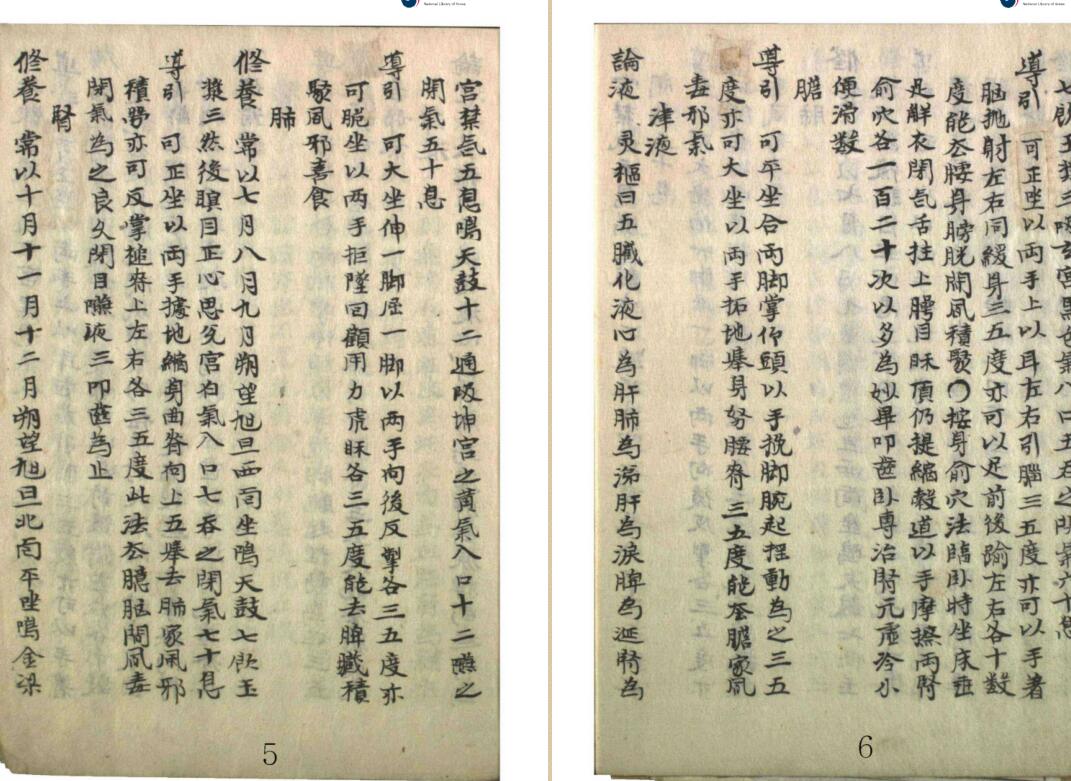 National Library of Korea
宮禁氣五息鳴天鼓十二通吸坤宮之黃氣入口十二嚥之
閉氣五十息
導引 可大坐伸一脚屈一脚以両手向後反掣各三五度亦
可跪坐以両手拒墜回顧用力虎眎各三五度能去脾臟積
聚風邪喜食
肺
修養 常以七月八月九月朔望旭旦西面坐鳴天鼓七飮玉
漿三然後瞑目正心思兌宮白氣入口七吞之閉氣七十息
導引 可正坐以両手據地縮身曲脊向上五擧去肺家風邪
積勞亦可反掌搥脊上左右各三五度此法去臆胷間風毒
閉氣為之良久閉目嚥液三叩齒為止
腎
修養 常以十月十一月十二月朔望旭旦北面平坐鳴金梁
5
National Library of Korea
導引 可正坐以両手上以耳左右引腦三五度亦可以手著
腦抛射左右同緩身三五度亦可以足前後踰左右各十數
度能去腰身膀胱間風積聚〇按身俞穴法臨卧時坐床垂
足觧衣閉氣舌拄上腭目眎頂仍提縮糓道以手摩擦両腎
俞穴各一百二十次以多為妙畢叩齒卧専治腎元虛冷小
便滑數
膽
導引 可平坐合両脚掌仰頭以手挽脚腕起揺動為之三五
度亦可大坐以両手拓地擧身努腰脊三五度能去膽家風
毒邪氣
津液
論液 灵樞曰五臟化液心為肝肺為涕肝為淚脾為涎腎為
6